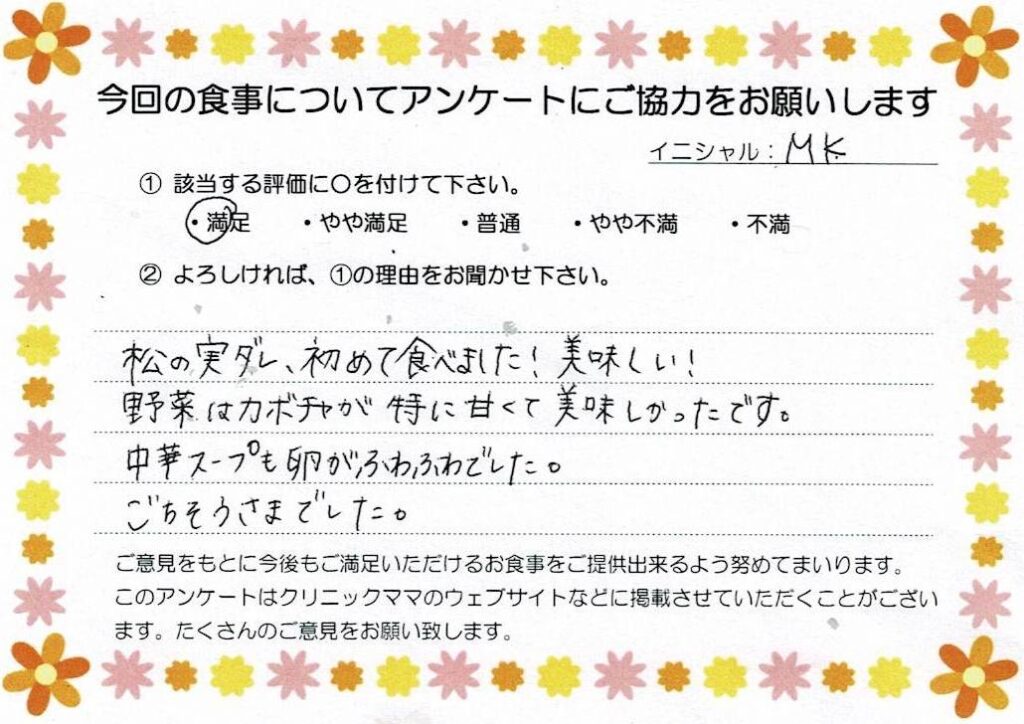 今回の食事についてアンケートにご協力をお願いします
イニシャル：MK
① 該当する評価に〇を付けて下さい。
・満足　・やや満足　・普通　・やや不満　・不満
② よろしければ、①の理由をお聞かせ下さい。
松の実ダレ、初めて食べました！美味しい！
野菜はカボチャが特に甘くて美味しかったです。
中華スープも卵がふわふわでした。
ごちそうさまでした。
ご意見をもとに今後もご満足いただけるお食事をご提供出来るよう努めてまいります。
このアンケートはクリニックママのウェブサイトなどに掲載させていただくことがござい
ます。たくさんのご意見をお願い致します。